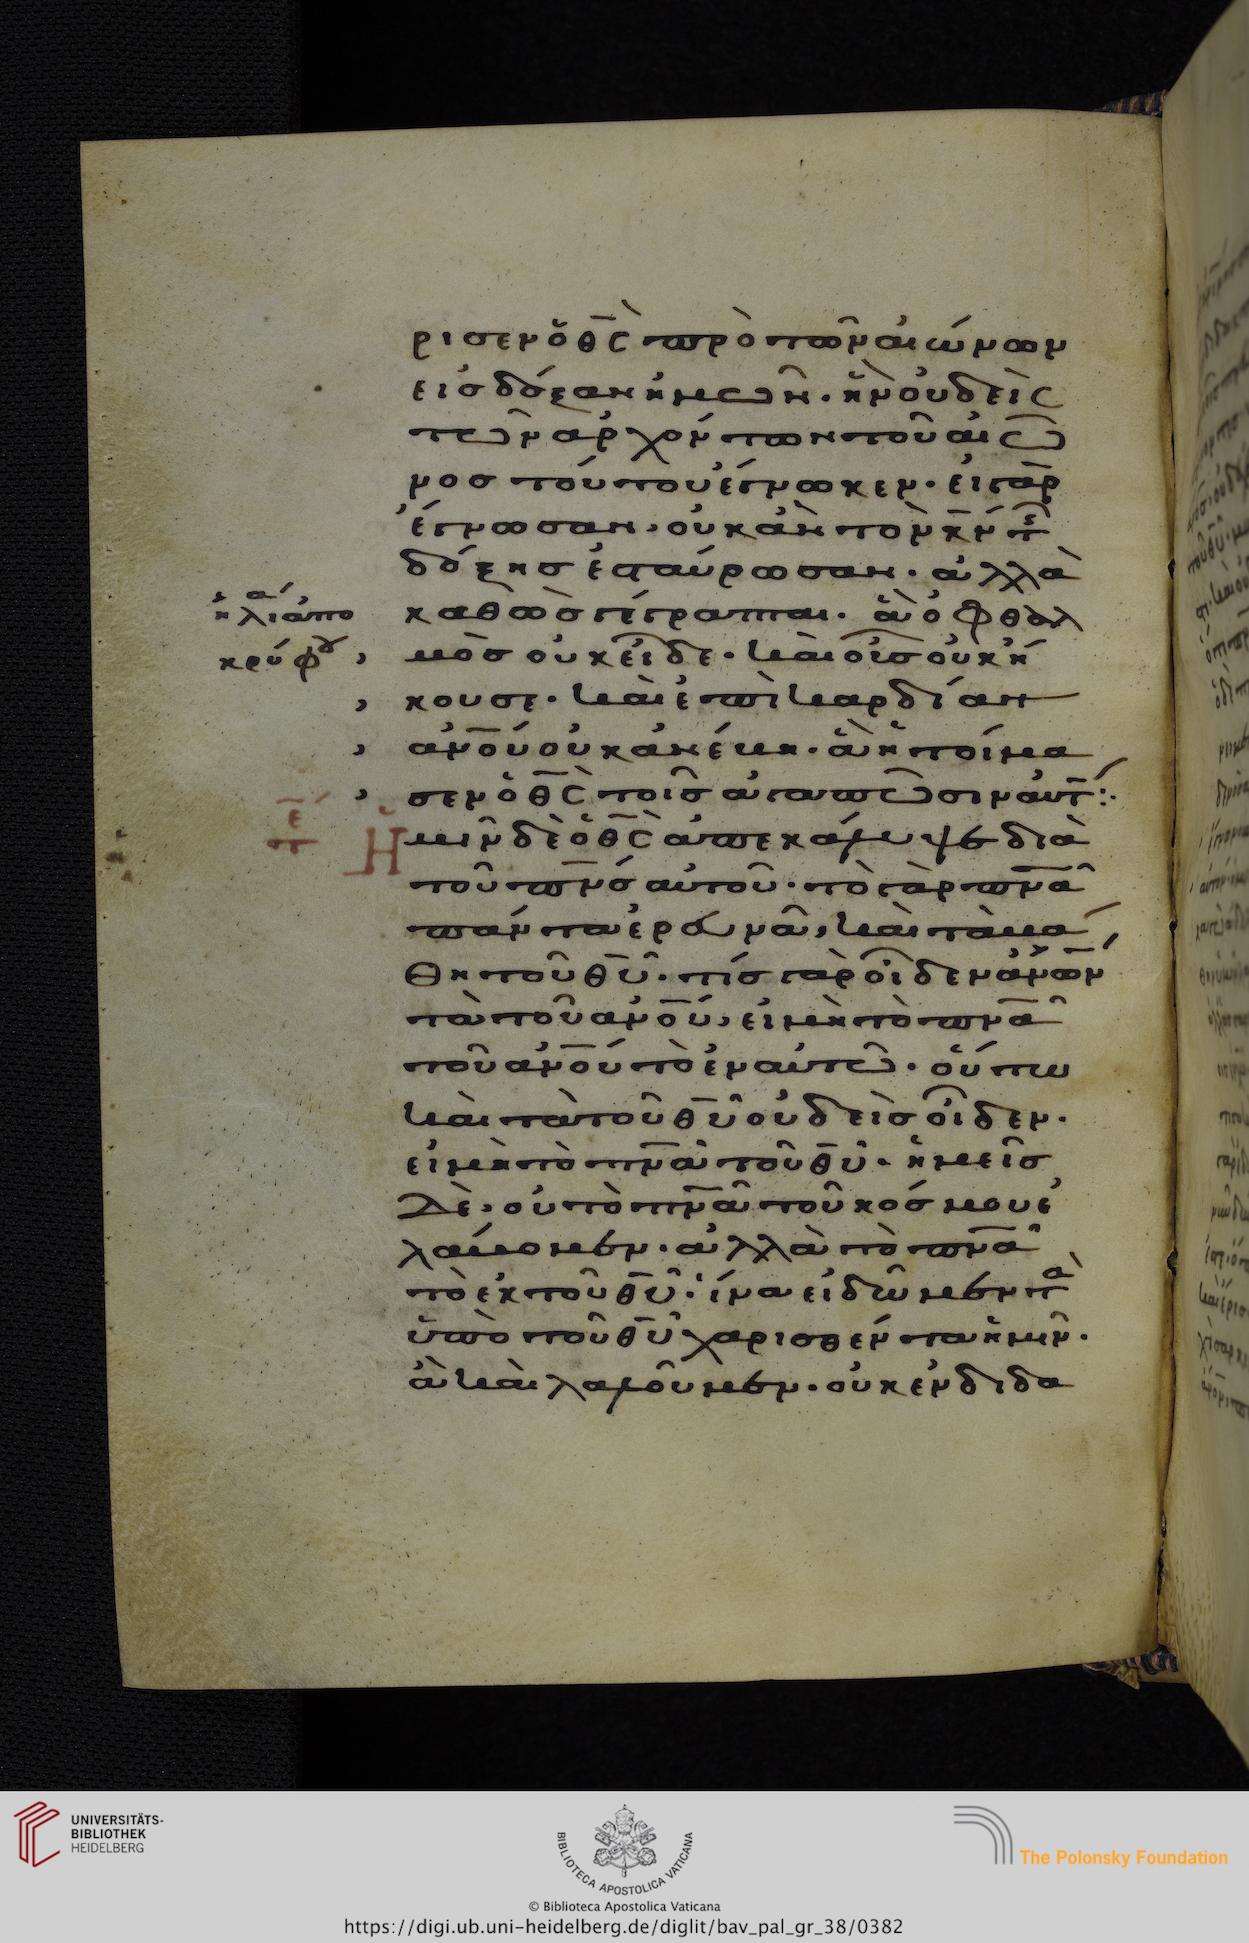 ρισεν ὁ θ̅ς̅ πρὸ τῶν αἰώνων
εἰς δόξαν ἡμῶν· ἣν οὐδεὶς
τῶν ἀρχόντων τοῦ αἰῶ
νος τούτου ἔγνωκεν· εἰ γὰρ
ἔγνωσαν, οὐκ ἂν τὸν κ̅ν̅ τῆ
δόξης ἐσταύρωσαν· ἀλλὰ
ἡλία ἀπο
καθὼς γέγραπται· ἃ ὀφθαλ
κρύφου
μὸς οὐκ εἶδε· καὶ οὖς οὐκ ἤ
κουσε· καὶ ἐπὶ καρδίαν
ἀν̅ο̅υ̅ οὐκ ἀνέβη· ἃ ἡτοίμα
σεν ὁ θ̅ς̅ τοῖς ἀγαπῶσιν αὐτ:·
ε̅
π
Ἡμῖν δὲ ὁ θ̅ς̅ ἀπεκάλυψε διὰ
τοῦ π̅ν̅ς̅ αὐτοῦ· τὸ γὰρ π̅ν̅α̅
πάντα ἐρευνᾶ, καὶ τὰ βά
θη τοῦ θ̅υ̅· τίς γὰρ οἶδεν ἀν̅ω̅ν̅
τὰ τοῦ ἀν̅ο̅υ̅, εἰ μὴ τὸ π̅ν̅α̅
τοῦ ἀν̅ο̅υ̅ τὸ ἐν αὐτῶ· οὕτω
καὶ τὰ τοῦ θ̅υ̅ οὐδεὶς οἶδεν·
εἰ μὴ τὸ π̅ν̅α̅ τοῦ θ̅υ̅· ἡμεῖς
δὲ, οὐ τὸ π̅ν̅α̅ τοῦ κόσμου ἐ
λάβομεν· ἀλλὰ τὸ π̅ν̅α̅
τὸ ἐκ τοῦ θ̅υ̅· ἵνα εἰδῶμεν τὰ
ὑπὸ τοῦ θ̅υ̅ χαρισθέντα ἡμῖν·
ἃ καὶ λαλοῦμεν· οὐκ ἐν διδα
UNIVERSITÄTS-
BIBLIOTHEK
HEIDELBERG
BIBLIOTECA APOSTOLICA VATICANA
The Polonsky Foundation
© Biblioteca Apostolica Vaticana
https://digi.ub.uni-heidelberg.de/diglit/bav_pal_gr_38/0382